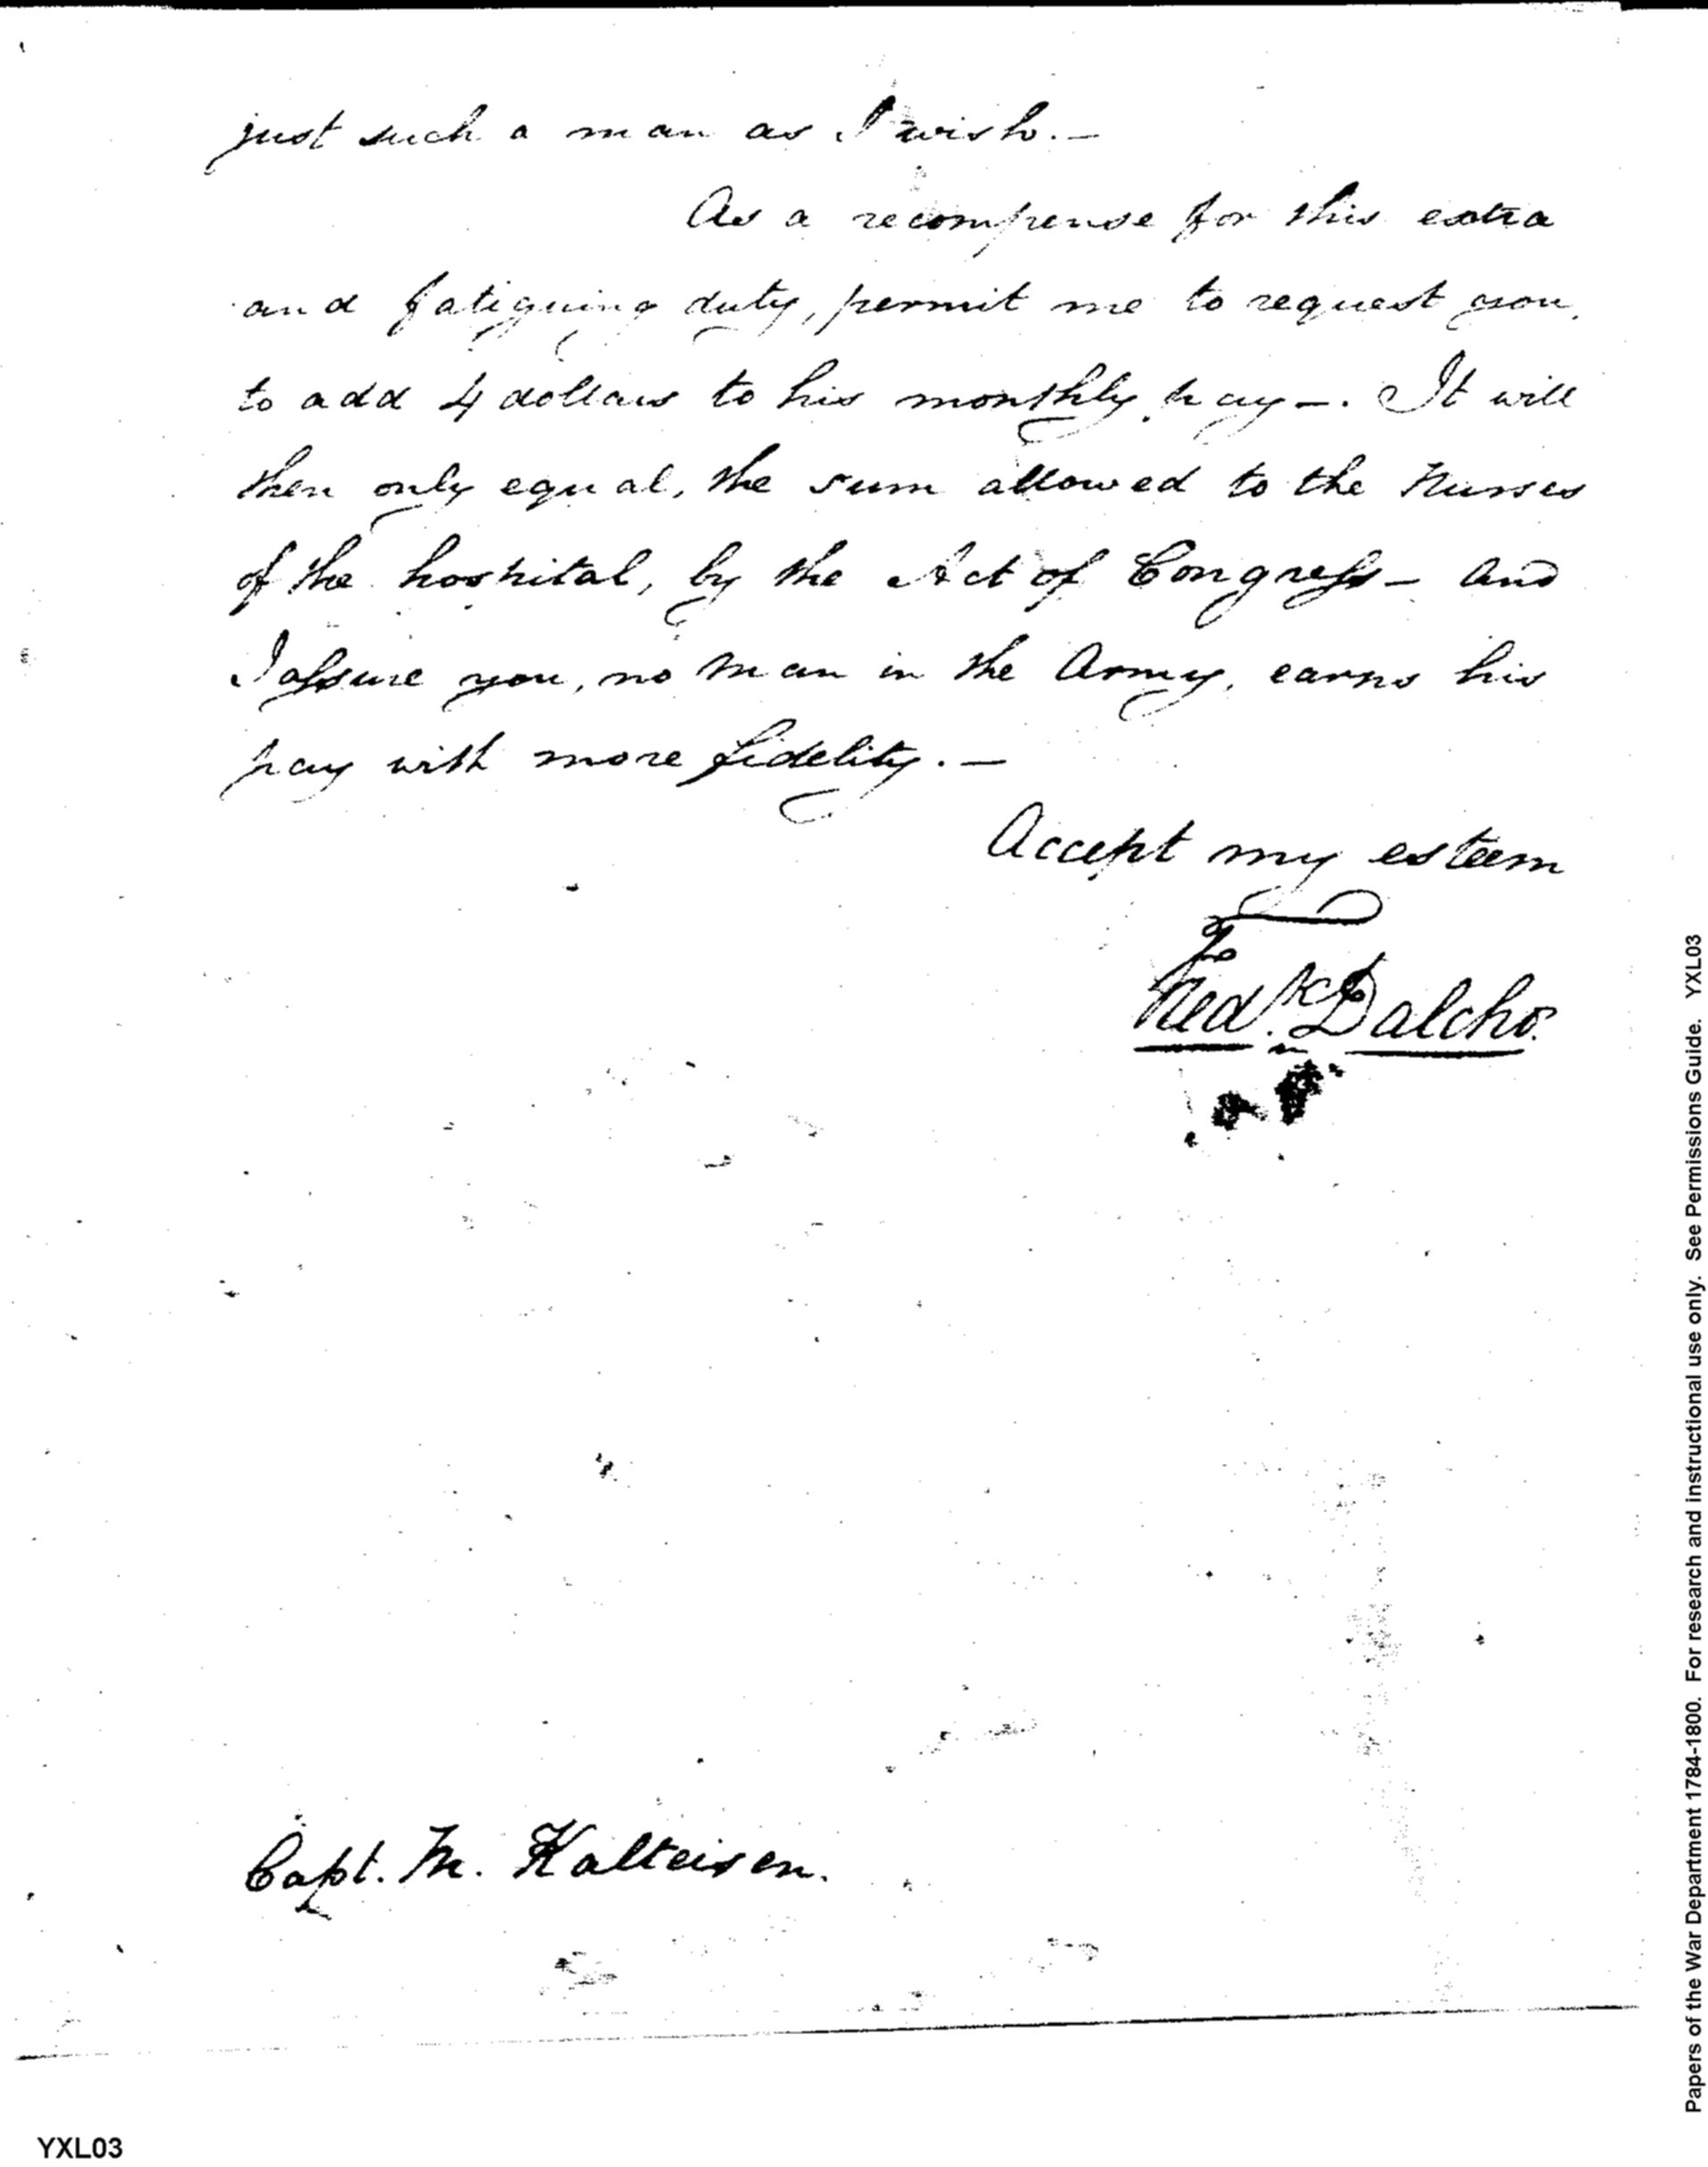 just such a man as I wish.—
As a recompense for this extra
and fatiguing duty, permit me to request you,
to add 4 dollars to his monthly pay—. It will
then only equal, the sum allowed to the Nurses
of the hospital, by the Act of Congress— and
I assure you, no man in the Army, earns his
pay with more fidelity.—
Accept my esteem
Fredk. Dalcho.
Capt. M. Kalteisen.
YXL03
Papers of the War Department 1784-1800. For research and instructional use only. See Permissions Guide. YXL03